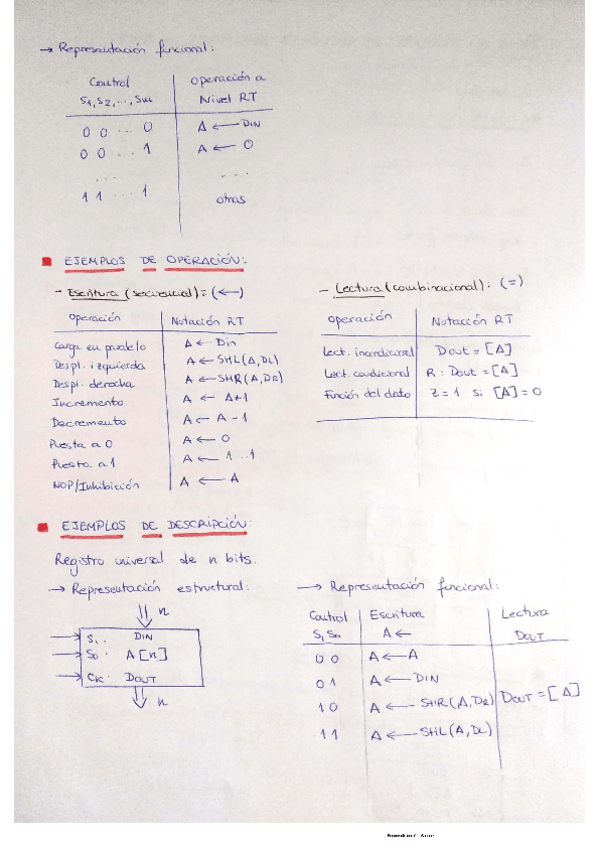 → Representación funcional:
Control | Operación a
S1, S2, ..., Sm | Nivel RT
0 0 ... 0 | A ← DIN
0 0 ... 1 | A ← 0
... | ...
1 1 ... 1 | otras
EJEMPLOS DE OPERACIÓN:
- Escritura (secuencial): (←)
Operación | Notación RT
Carga en paralelo | A ← Din
Despl. izquierda | A ← SHL(A,DL)
Despl. derecha | A ← SHR(A,DR)
Incremento | A ← A+1
Decremento | A ← A-1
Puesta a 0 | A ← 0
Puesta a 1 | A ← 1...1
NOP/Inhibición | A ← A
- Lectura (combinacional): (=)
Operación | Notación RT
Lect. incondicional | Dout = [A]
Lect. condicional | R: Dout = [A]
Función del dato | Z=1 si [A]=0
EJEMPLOS DE DESCRIPCIÓN:
Registro universal de n bits.
→ Representación estructural:
n
S1. DIN
S0. A[n]
CK. DOUT
n
→ Representación funcional:
Control | Escritura | Lectura
S1 S0 | A ← | DOUT
0 0 | A ← A
0 1 | A ← DIN
1 0 | A ← SHR(A,DR) | DOUT = [A]
1 1 | A ← SHL(A,DL)